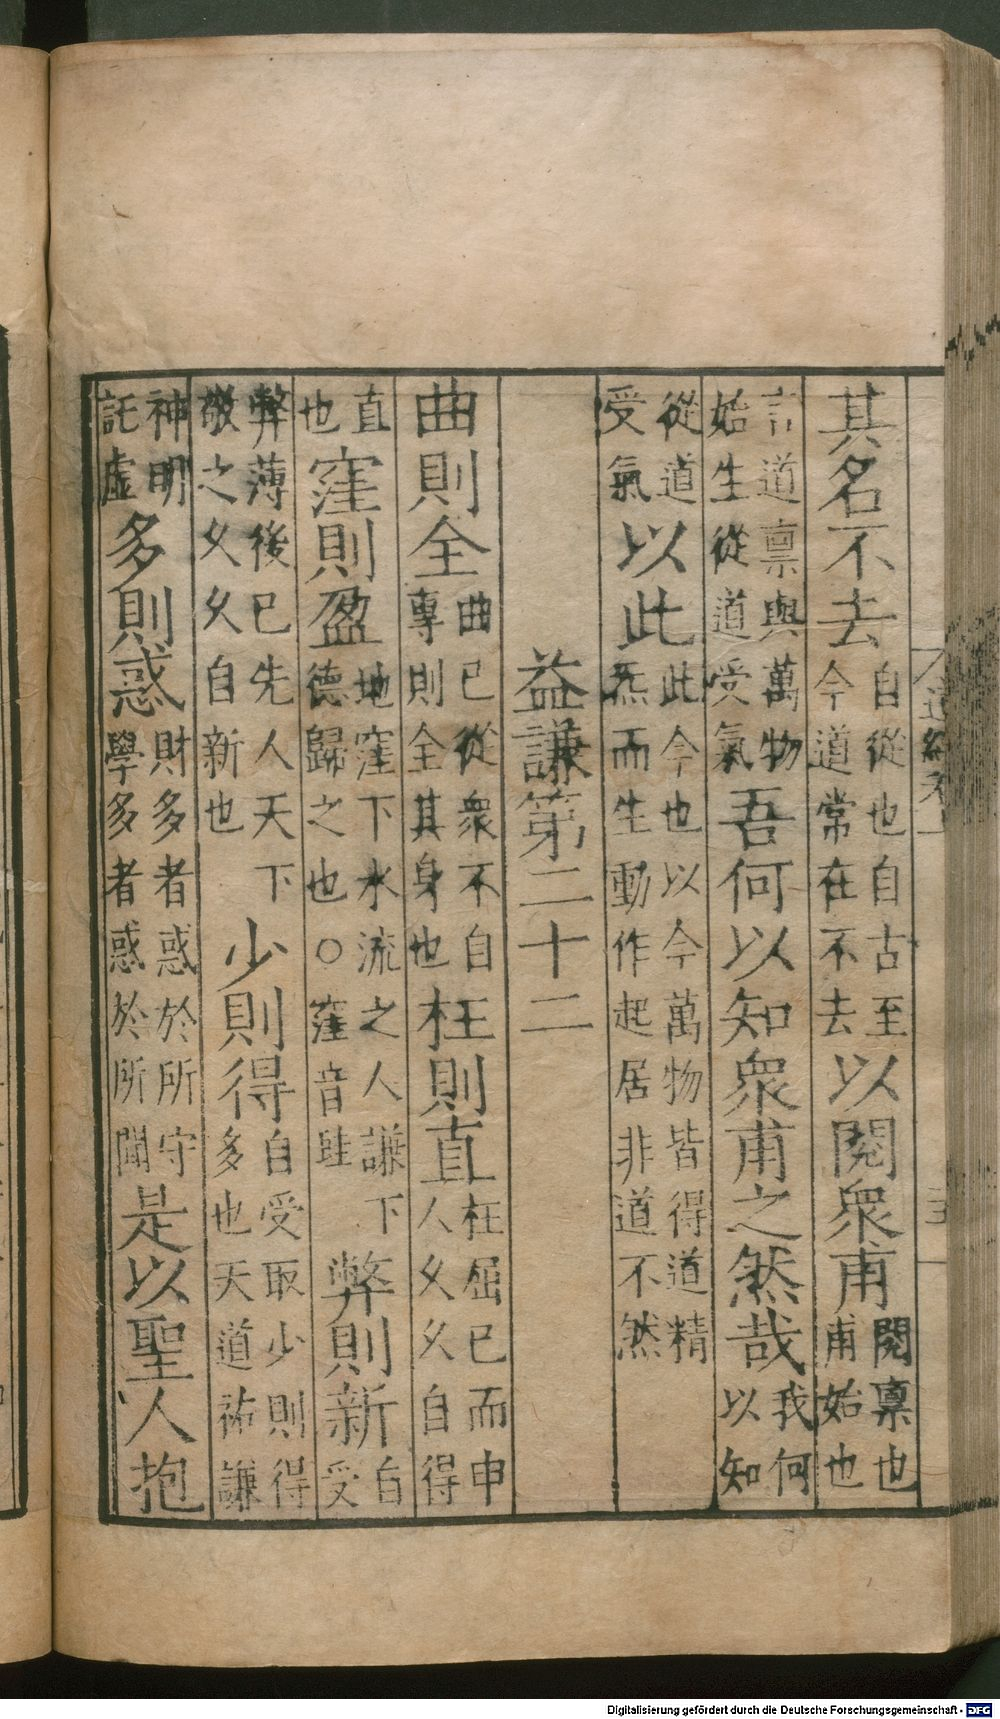 其名不去自從也自古至今道常在不去以閱衆甫閱禀也甫始也
言道禀與萬物始生從道受氣吾何以知衆甫之然哉我何以知
從道受氣以此此今也以今萬物皆得道精炁而生動作起居非道不然
益謙第二十二
曲則全曲已從衆不自專則全其身也枉則直枉屈已而申人久久自得
直也窪則盈地窪下水流之人謙下德歸之也○窪音畦弊則新自受
弊薄後已先人天下敬之久久自新也少則得自受取少則得多也天道祐謙
神明託虛多則惑財多者惑於所守學多者惑於所聞是以聖人抱
Digitalisierung gefördert durch die Deutsche Forschungsgemeinschaft - DFG